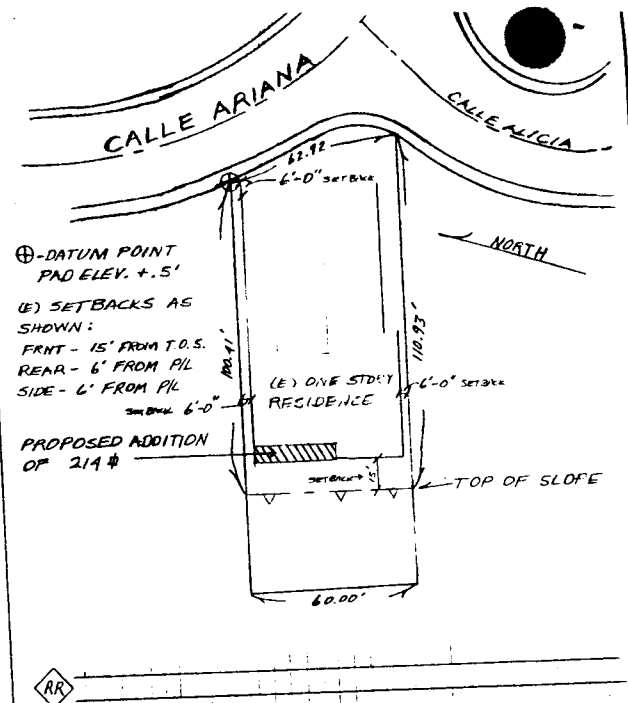 CALLE ARIANA
CALLE ALICIA
62.92
6'-0" SETBACK
NORTH
⊕-DATUM POINT
PAD ELEV. +.5'
(E) SETBACKS AS
SHOWN:
FRNT - 15' FROM T.O.S.
REAR - 6' FROM P/L
SIDE - 6' FROM P/L
100.41'
110.93'
(E) ONE STORY
RESIDENCE
6'-0" SETBACK
SETBACK 6'-0"
PROPOSED ADDITION
OF 214 ⌗
SETBACK → 15'
TOP OF SLOPE
60.00'
RR